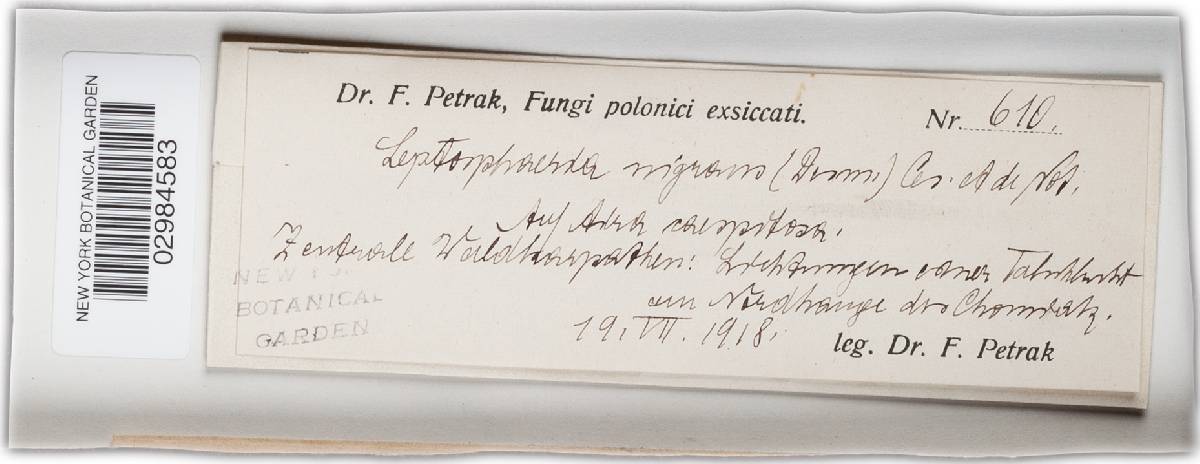 NEW YORK BOTANICAL GARDEN
02984583
Dr. F. Petrak, Fungi polonici exsiccati.
Nr. 610.
Leptosphaeria nigrans (Desm.) Ces. et de Not.
Auf Aira caespitosa.
Zentrale Waldkarpathen: Lichtungen einer Talschlucht
am Nordhange des
19. VII. 1918.
leg. Dr. F. Petrak
NEW
BOTANICAL
GARDEN